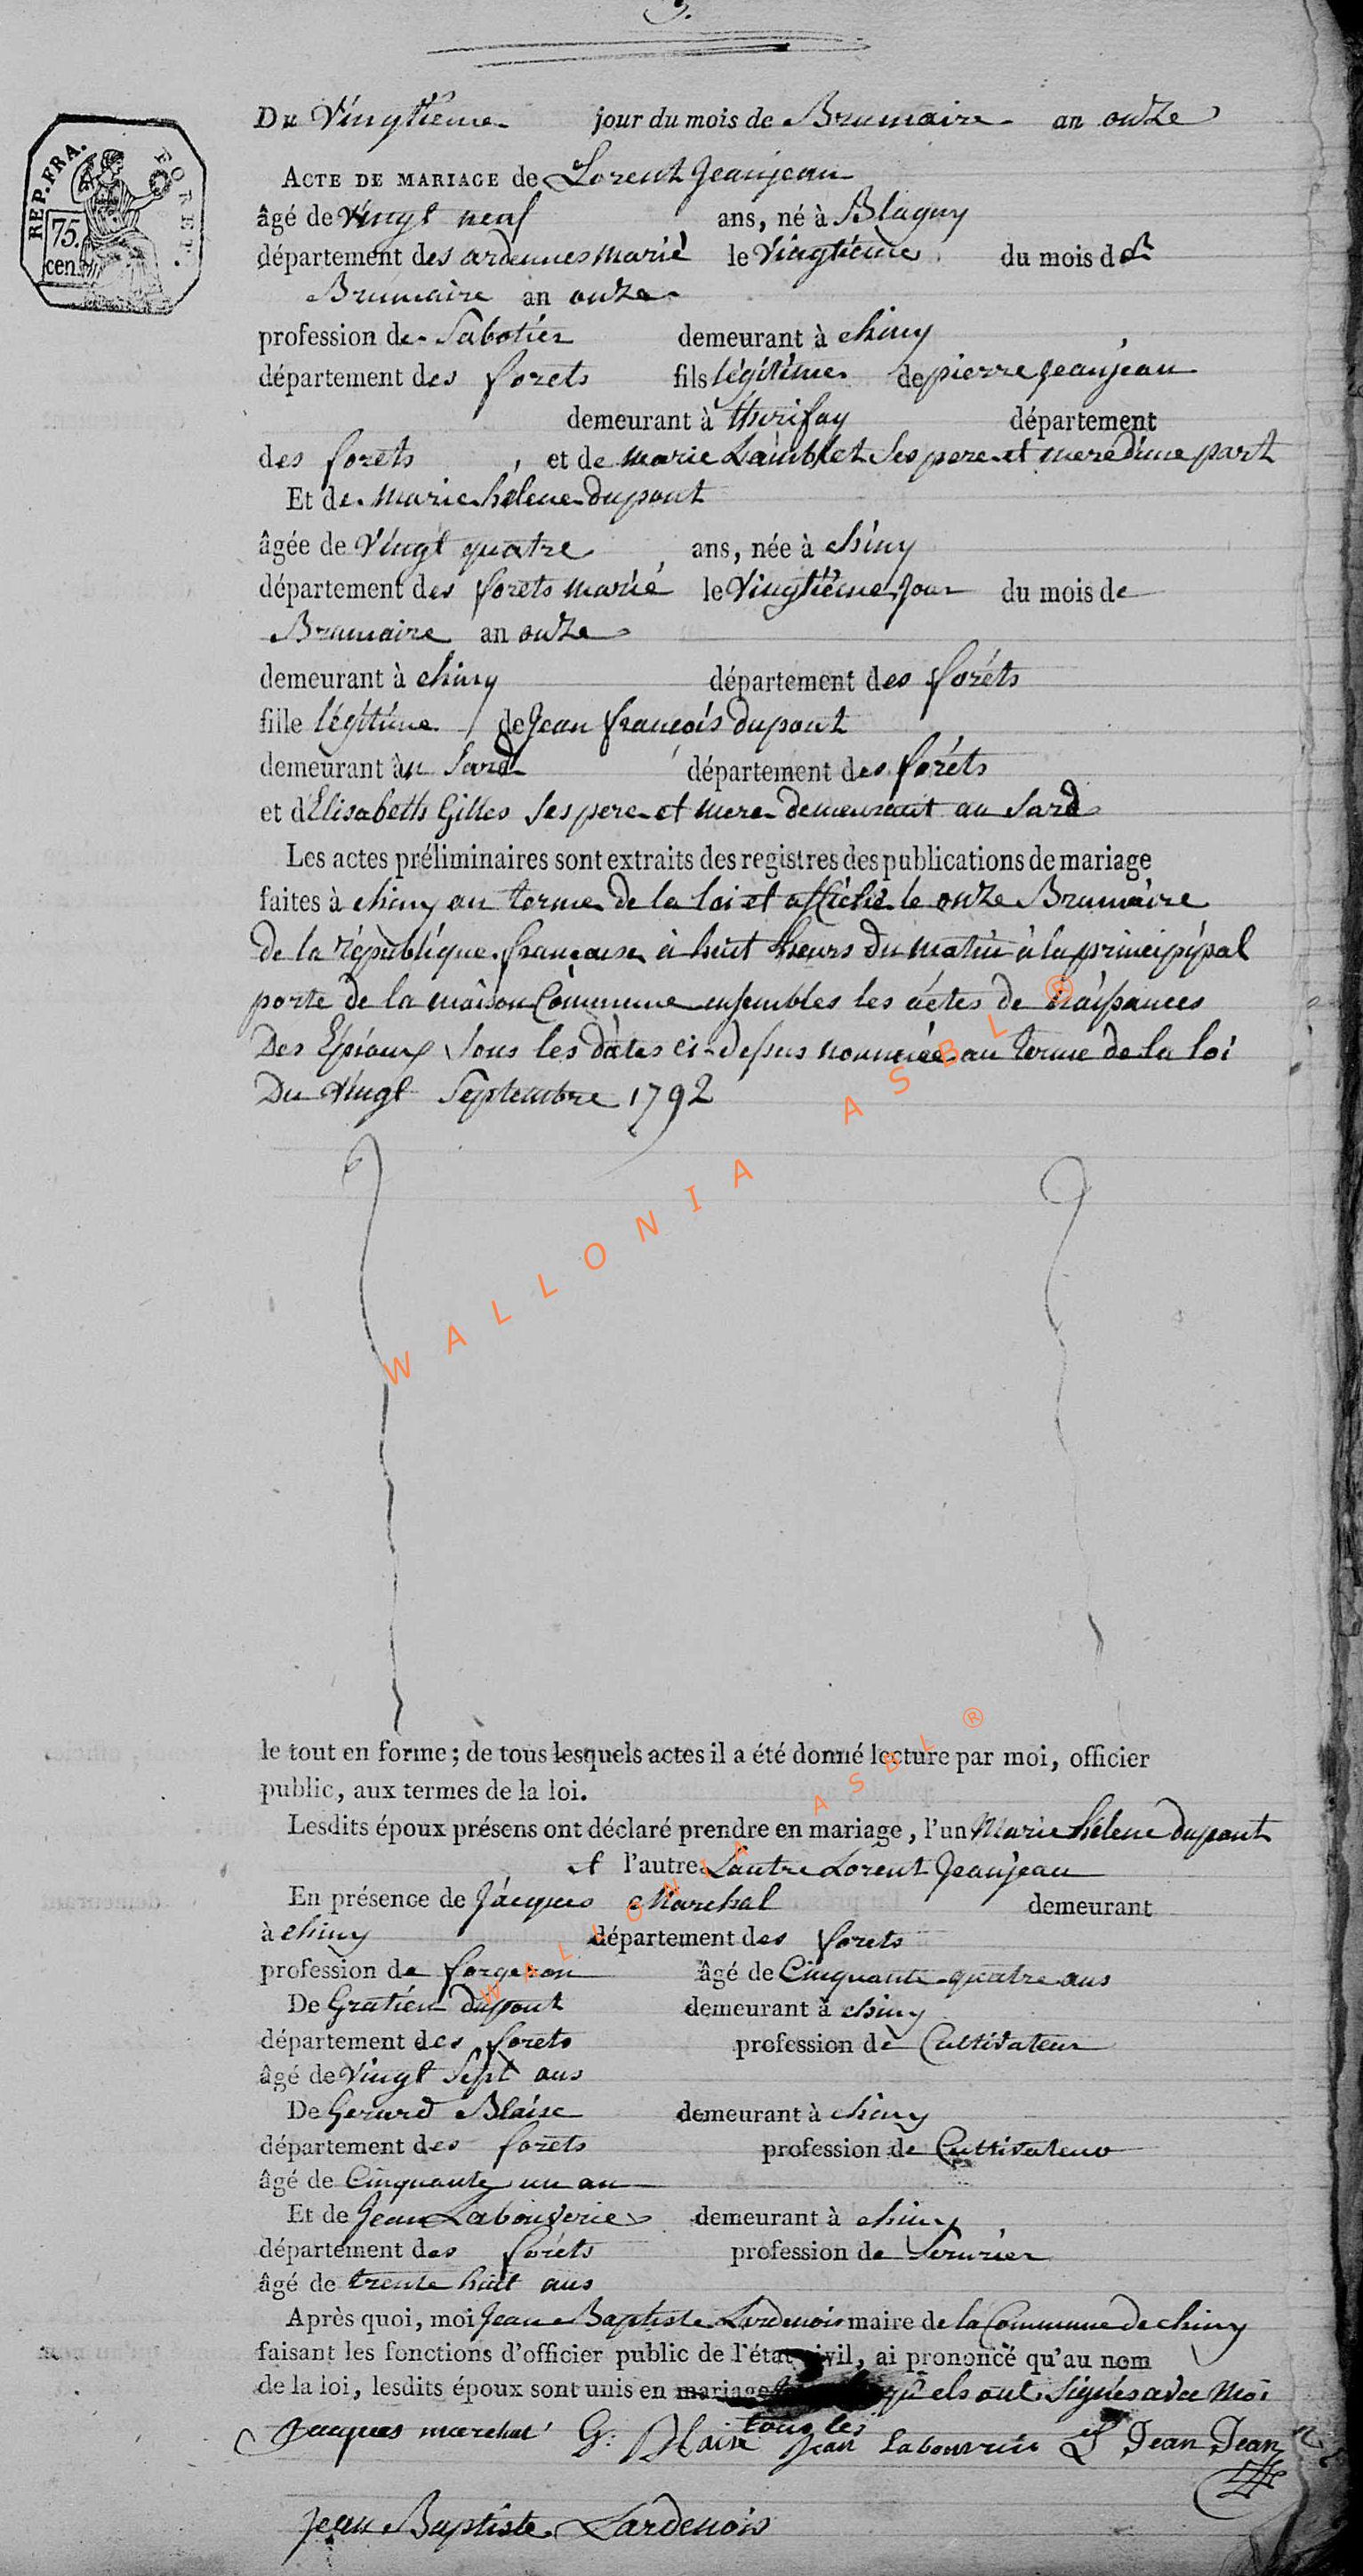 3.
REP. FRA.
FORET.
75.
cen.
Du Vingtieme jour du mois de Brumaire an onze
ACTE DE MARIAGE de Lorent Jeanjean
âgé de Vingt neuf ans, né à Blagny
département des ardennes marié le Vingtieme du mois de
Brumaire an onze
profession de Sabotier demeurant à chiny
département des forets fils légitime de pierre jeanjean
demeurant à thurifay département
des forets, et de marie Lamblet Ses pere et mere d'une part
Et de marie helene dupont
âgée de Vingt quatre ans, née à chiny
département des forets marié le Vingtieme jour du mois de
Brumaire an onze
demeurant à chiny département des foréts
fille légitime de Jean françois dupont
demeurant au Sard département des foréts
et d'Elisabeth Gilles Ses pere et mere demeurant au Sard
Les actes préliminaires sont extraits des registres des publications de mariage
faites à chiny au terme de la loi et affiché le onze Brumaire
de la république française à huit heurs du matin à la principipal
porte de la maison Commune ensembles les actes de naissances
Des Epioux Sous les dates ci-dessus nommée au terme de la loi
Du Vingt Septembre 1792
WALLONIA ASBL ®
le tout en forme ; de tous lesquels actes il a été donné lecture par moi, officier
public, aux termes de la loi.
Lesdits époux présens ont déclaré prendre en mariage, l'un Marie helene dupont
et l'autre Lautre Lorent Jeanjean
En présence de Jacques Marchal demeurant
à chiny département des forets
profession de forgeron âgé de Cinquante quatre ans
De Gratien dupont demeurant à chiny
département des forets profession de Cultivateur
âgé de Vingt Sept ans
De Gerard Blaise demeurant à chiny
département des forets profession de Cultivateur
âgé de Cinquante un an
Et de Jean Labouverie demeurant à chiny
département des foréts profession de Serurier
âgé de trente huit ans
Après quoi, moi Jean Baptiste Lardenois maire de la Commune de chiny
faisant les fonctions d'officier public de l'état civil, ai prononcé qu'au nom
de la loi, lesdits époux sont unis en mariage qu'els ont Signés avec Moi
tous les
Jacques marchal G: Blaise Jean Labouvrie L Jean Jean
Jean Baptiste Lardenois
WALLONIA ASBL ®